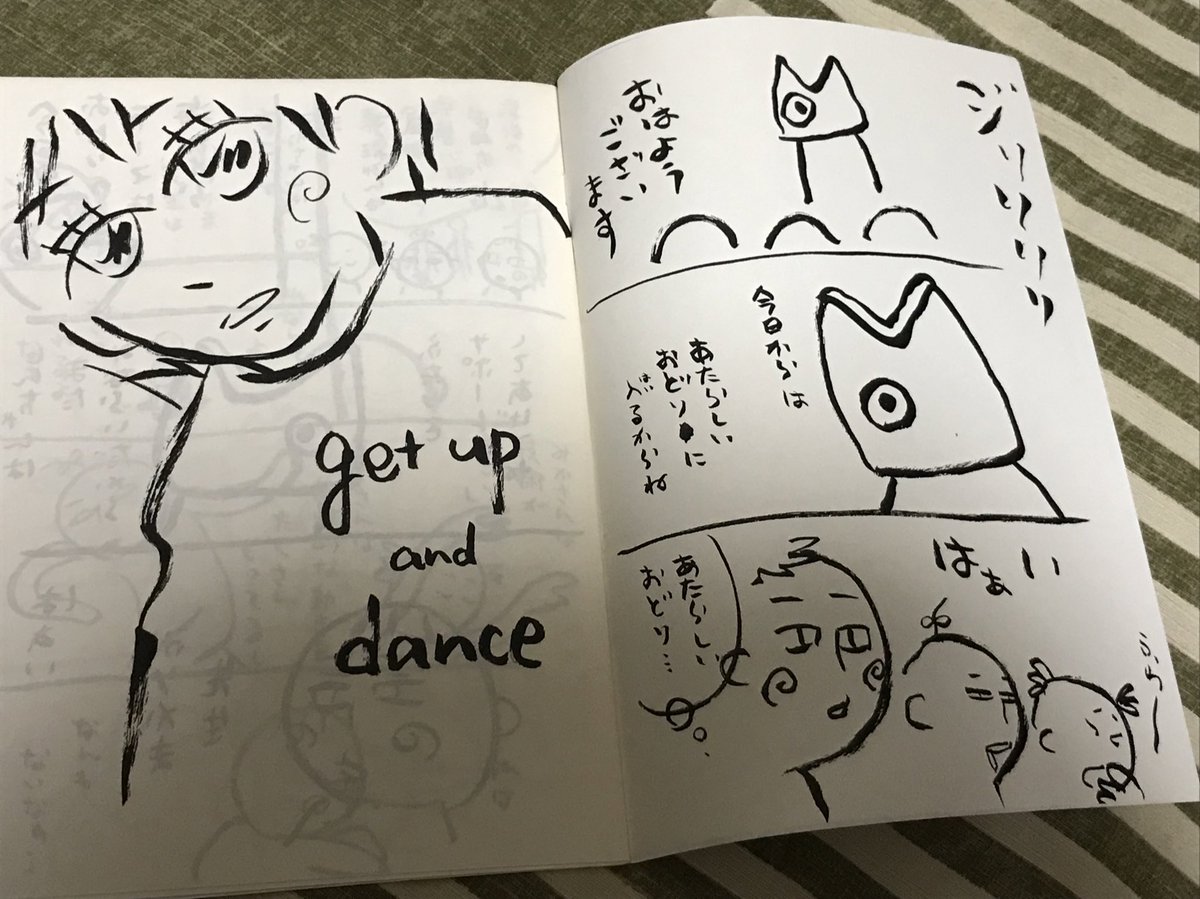 get up
and
dance
ジリリリリ
おはよう
ござい
ます
今日からは
あたらしい
おどりに
入るからね
はい
はぁい
あたらしい
おどり…